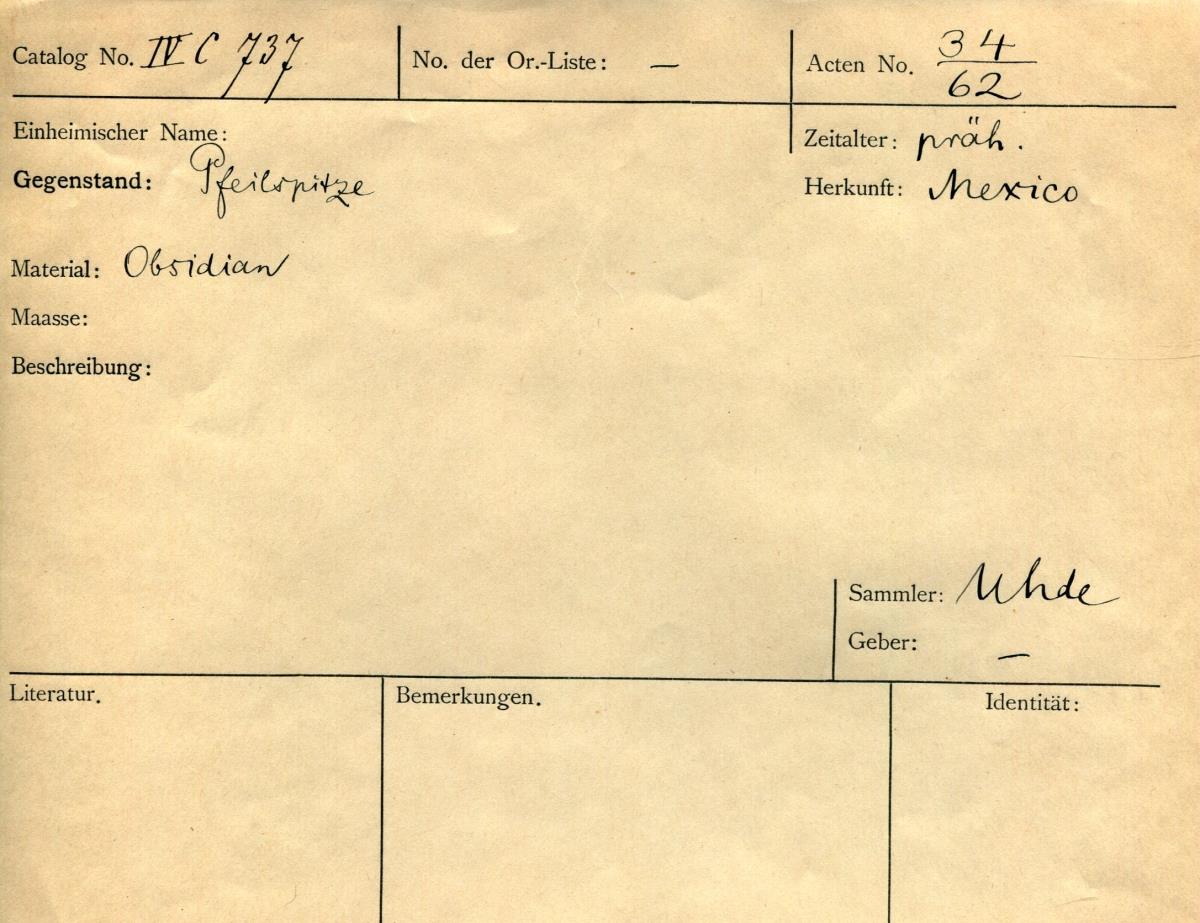 Catalog No. IV C 737
No. der Or.-Liste: —
Acten No. 34/62
Einheimischer Name:
Zeitalter: präh.
Gegenstand: Pfeilspitze
Herkunft: Mexico
Material: Obsidian
Maasse:
Beschreibung:
Sammler: Uhde
Geber: —
Literatur.
Bemerkungen.
Identität: